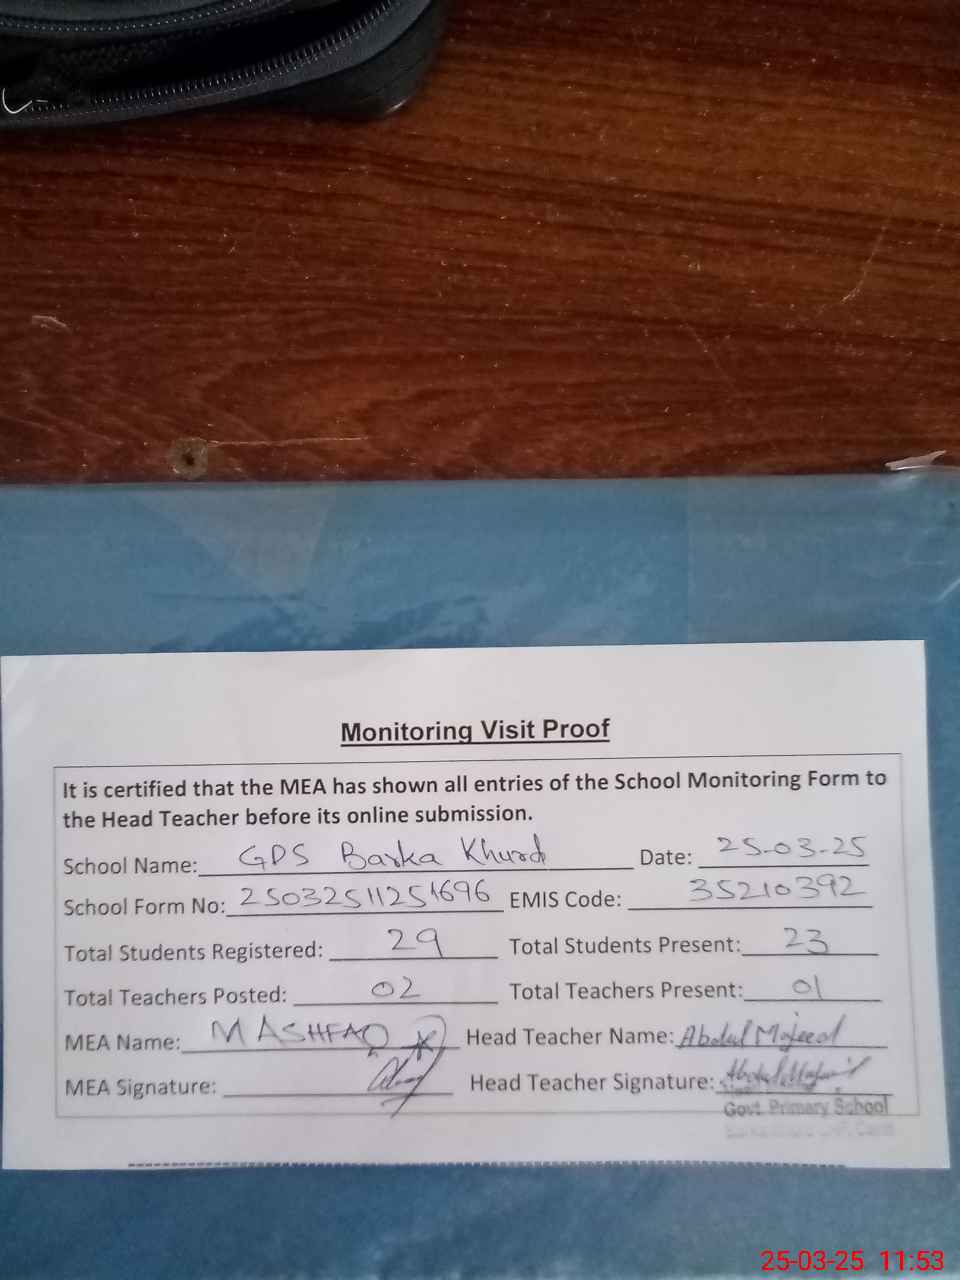 Monitoring Visit Proof
It is certified that the MEA has shown all entries of the School Monitoring Form to
the Head Teacher before its online submission.
School Name: GPS Barka Khurd Date: 25-03-25
School Form No: 25032511251696 EMIS Code: 35210392
Total Students Registered: 29 Total Students Present: 23
Total Teachers Posted: 02 Total Teachers Present: 01
MEA Name: M ASHFAQ Head Teacher Name: Abdul Majeed
MEA Signature: Head Teacher Signature: Abdul Majeed
Govt. Primary School
25-03-25 11:53